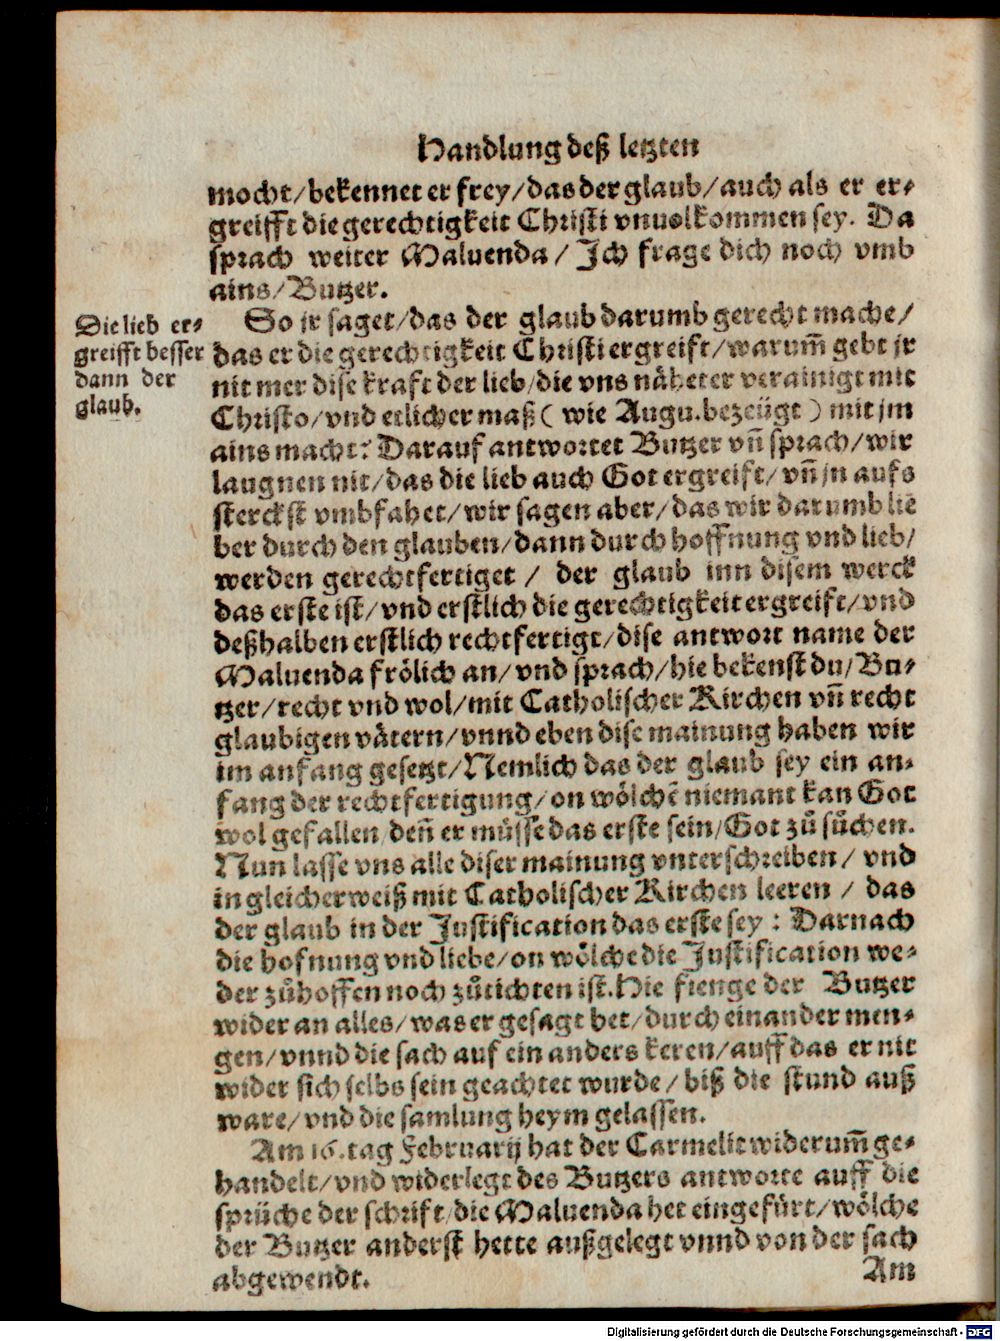 Handlung deß letzten
mocht/bekennet er frey/das der glaub/auch als er er-
greifft die gerechtigkeit Christi vnuolkommen sey. Da
sprach weiter Maluenda/ Ich frage dich noch vmb
ains/Butzer.
Die lieb er-
greifft besser
dann der
glaub.
So jr saget/das der glaub darumb gerecht mache/
das er die gerechtigkeit Christi ergreift/warum̃ gebt jr
nit mer dise kraft der lieb/die vns näheter verainigt mit
Christo/vnd etlicher maß ( wie Augu. bezeügt ) mit jm
ains macht? Darauf antwortet Butzer vñ sprach/wir
laugnen nit/das die lieb auch Got ergreift/ vñ jn aufs
sterckst vmbfahet/wir sagen aber/das wir darumb lie
ber durch den glauben/dann durch hoffnung vnd lieb/
werden gerechtfertiget / der glaub inn disem werck
das erste ist/vnd erstlich die gerechtigkeit ergreift/vnd
deßhalben erstlich rechtfertigt/dise antwort name der
Maluenda frölich an/vnd sprach/hie bekenst du/Bu-
tzer/recht vnd wol/mit Catholischer Kirchen vñ recht
glaubigen vätern/vnnd eben dise mainung haben wir
im anfang gesetzt/Nemlich das der glaub sey ein an-
fang der rechtfertigung/on wölchē niemant kan Got
wol gefallen/deñ er müsse das erste sein/Got zů sůchen.
Nun lasse vns alle diser mainung vnterschreiben/ vnd
in gleicherweiß mit Catholischer Kirchen leeren / das
der glaub in der Justification das erste sey : Darnach
die hofnung vnd liebe/on wölche die Justification we-
der zůhoffen noch zůtichten ist. Hie fienge der Butzer
wider an alles/was er gesagt het/durch einander men-
gen/vnnd die sach auf ein anders keren/auff das er nit
wider sich selbs sein geachtet wurde/ biß die stund auß
ware/vnd die samlung heym gelassen.
Am 16. tag Februarij hat der Carmelit widerum̃ ge-
handelt/vnd widerlegt des Butzers antworte auff die
sprüche der schrift/die Maluenda het eingefürt/wölche
der Butzer anderst hette außgelegt vnnd von der sach
abgewendt.
Am
Digitalisierung gefördert durch die Deutsche Forschungsgemeinschaft - DFG